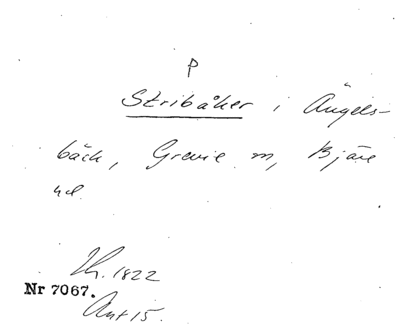 P
Stribåker i Ängels-
bäck, Grevie sn, Bjäre
hd.
Th. 1822
Nr 7067.
Ant 15.